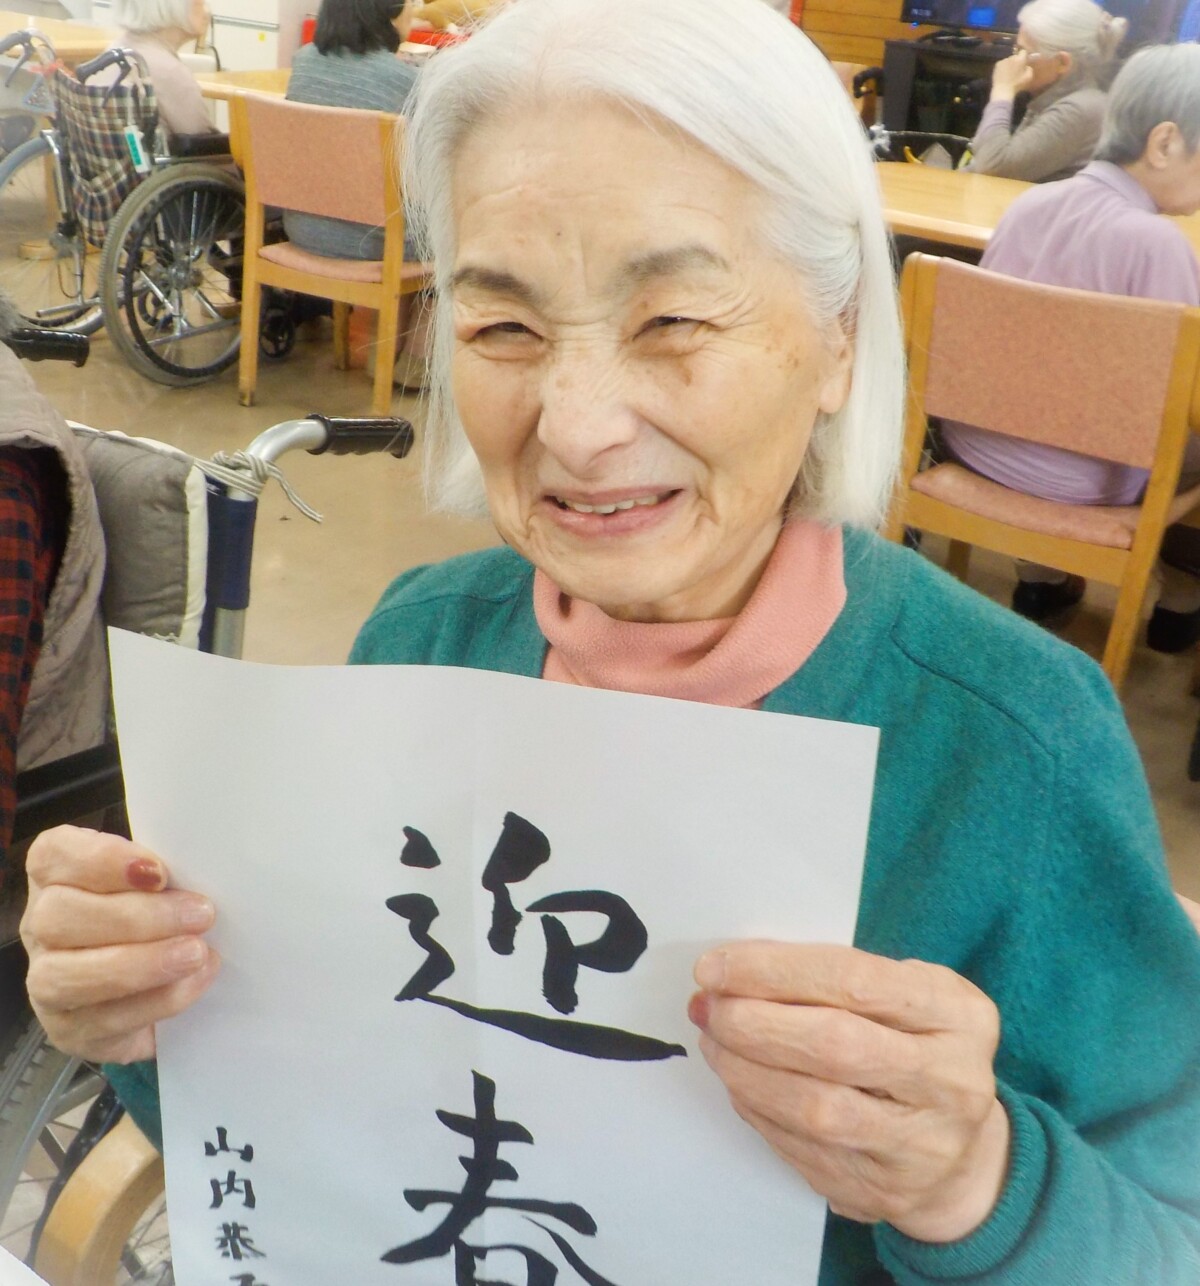 迎春
山内恭子